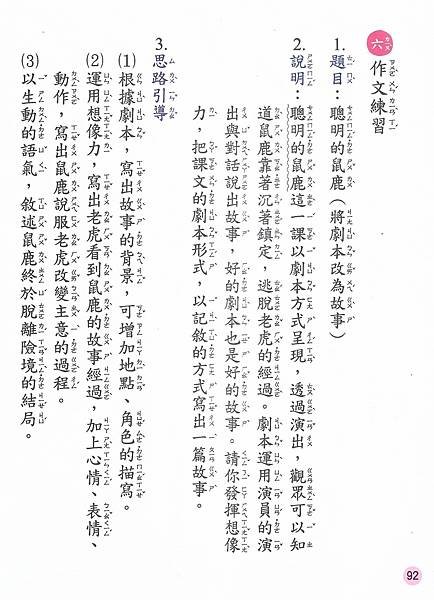 六 作文練習
1. 題目：聰明的鼠鹿（將劇本改為故事）
2. 說明：聰明的鼠鹿這一課以劇本方式呈現，透過演出，觀眾可以知
道鼠鹿靠著沉著鎮定，逃脫老虎的經過。劇本運用演員的演
出與對話說出故事，好的劇本也是好的故事。請你發揮想像
力，把課文的劇本形式，以記敘的方式寫出一篇故事。
3. 思路引導
(1) 根據劇本，寫出故事的背景，可增加地點、角色的描寫。
(2) 運用想像力，寫出老虎看到鼠鹿的故事經過，加上心情、表情、
動作，寫出鼠鹿說服老虎改變主意的過程。
(3) 以生動的語氣，敘述鼠鹿終於脫離險境的結局。
92